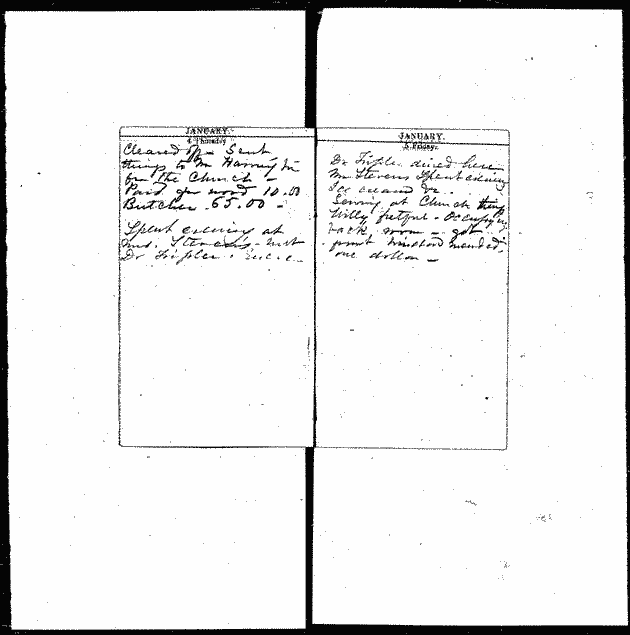 JANUARY.
4 Thursday
Cleared up - Sent
things to Mr Harrington
for the Church -
Paid for wood 10.00
Butcher 65.00 -
Spent evening at
Mrs. Stevens - met
Dr Tripler.
JANUARY.
5 Friday.
Dr Tripler dined here
Mr Stevens Spent evening
Ice cream &c..
Sewing at Church things
Willy - Occupying
back room - got
front window mended,
one dollar -